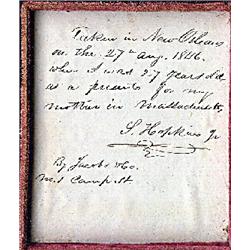 Taken in New Orleans
on the 27th Aug. 1846.
when I was 27 years old
as a present for my
mother in Massachusetts,
S. Hopkins Jr
By Jacobs & Co.
No. 1 Camp St